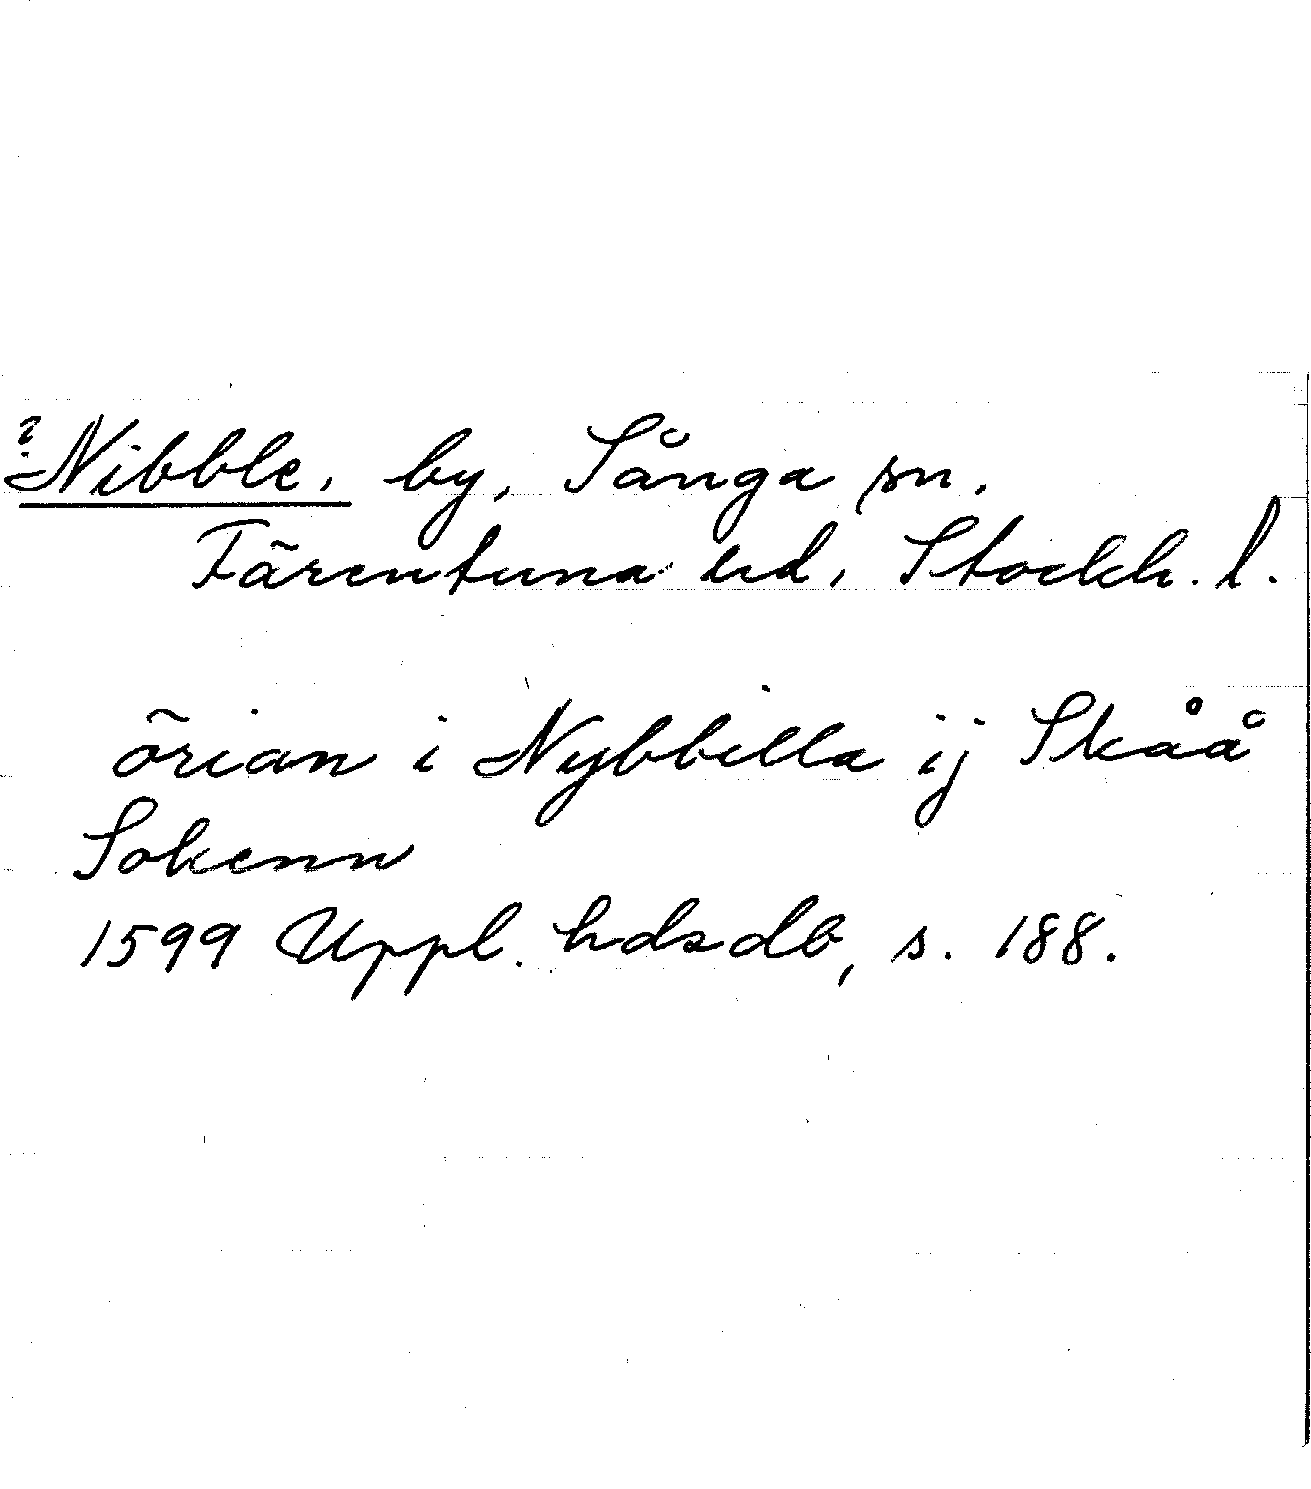 ? Nibble, by, Sånga sn,
Färentuna hd, Stockh. l.
örian i Nybbilla ij Skåå
Sokenn
1599 Uppl. hdsdb, s. 188.